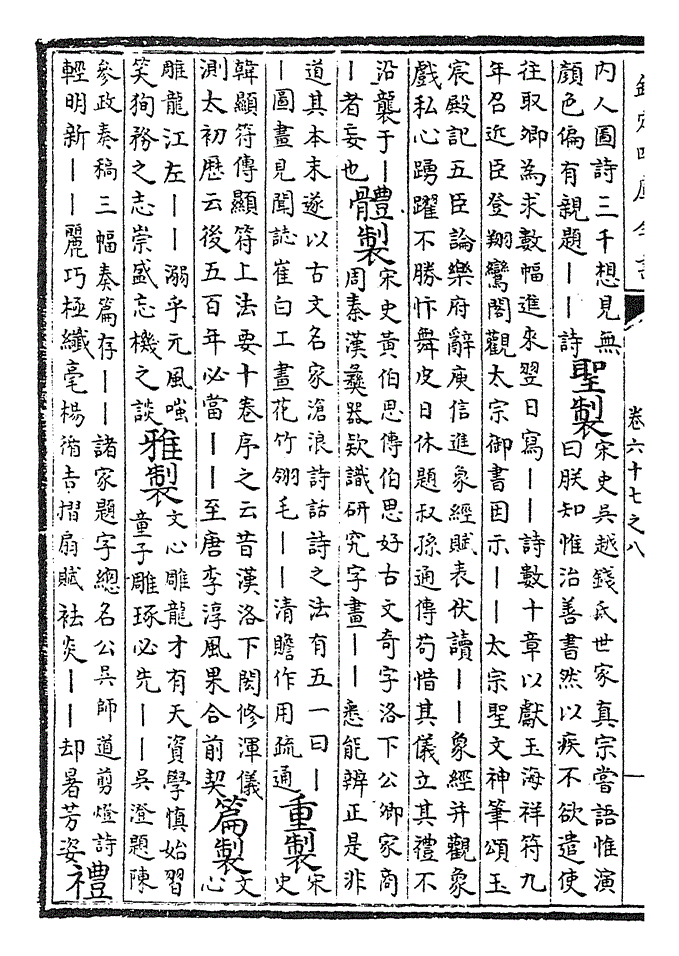 欽定四庫全書
卷六十七之八
内人圖詩三千想見無
顏色偏有親題——詩
聖製
宋史吳越錢氏世家真宗嘗語惟演
曰朕知惟治善書然以疾不欲遣使
往取卿為求數幅進來翌日寫——詩數十章以獻玉海祥符九
年召近臣登翔鸞閣觀太宗御書因示——太宗聖文神筆頌玉
宸殿記五臣論樂府辭庾信進象經賦表伏讀——象經并觀象
戲私心踴躍不勝忭舞皮日休題叔孫通傳苟惜其儀立其禮不
沿襲于—
—者妄也
體製
宋史黃伯思傳伯思好古文奇字洛下公卿家商
周秦漢彝器欵識研究字畫——悉能辨正是非
道其本末遂以古文名家滄浪詩話詩之法有五一曰—
—圖畫見聞誌崔白工畫花竹翎毛——清贍作用疏通
重製
宋
史
韓顯符傳顯符上法要十卷序之云昔漢洛下閎修渾儀
測太初歷云後五百年必當——至唐李淳風果合前契
篇製
文
心
雕龍江左——溺乎元風嗤
笑狥務之志崇盛忘機之談
雅製
文心雕龍才有天資學慎始習
童子雕琢必先——吳澄題陳
參政奏稿三幅奏篇存——諸家題字總名公吳師道剪燈詩
輕明新——麗巧極纖毫楊脩吉摺扇賦祛炎——却暑芳姿
禮